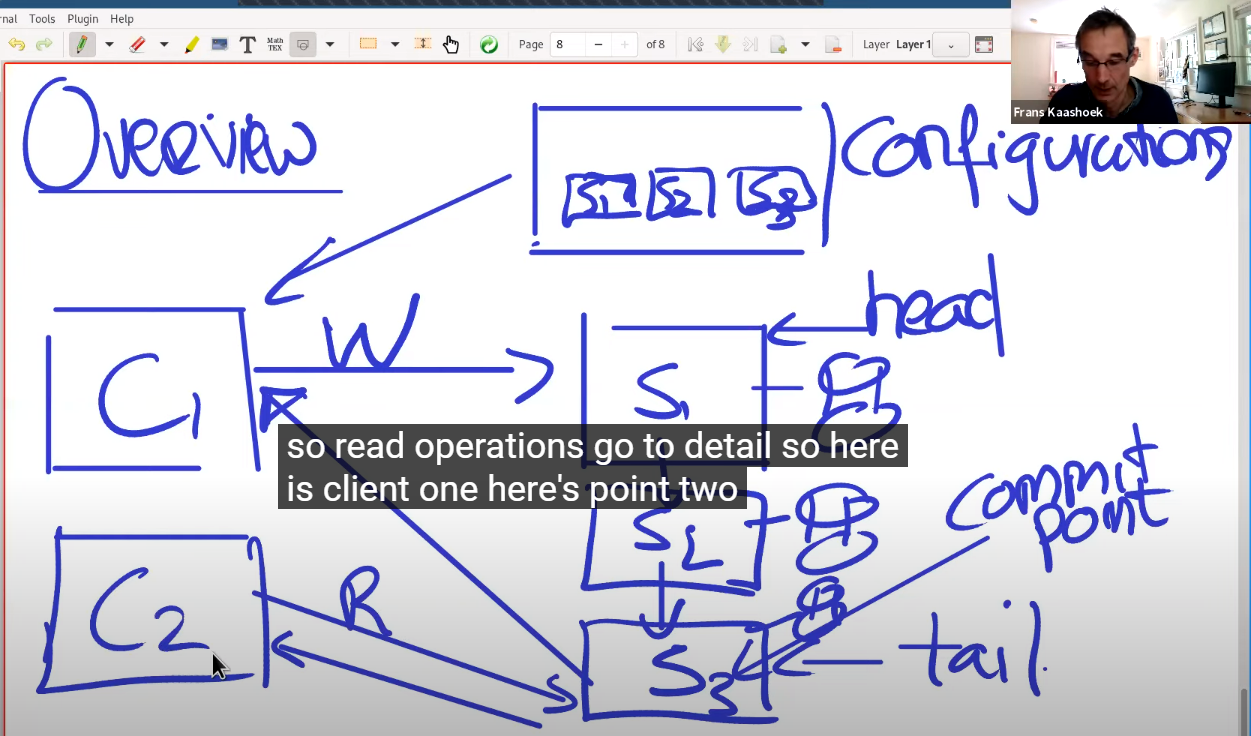 rnal Tools Plugin Help
Math TEX
Page 8 of 8
Layer Layer 1
Frans Kaashoek
Overview
Configurations
S1 S2 S3
head
W
C1
S1
so read operations go to detail so here
is client one here's point two
commit
point
S2
C2
R
S3
tail